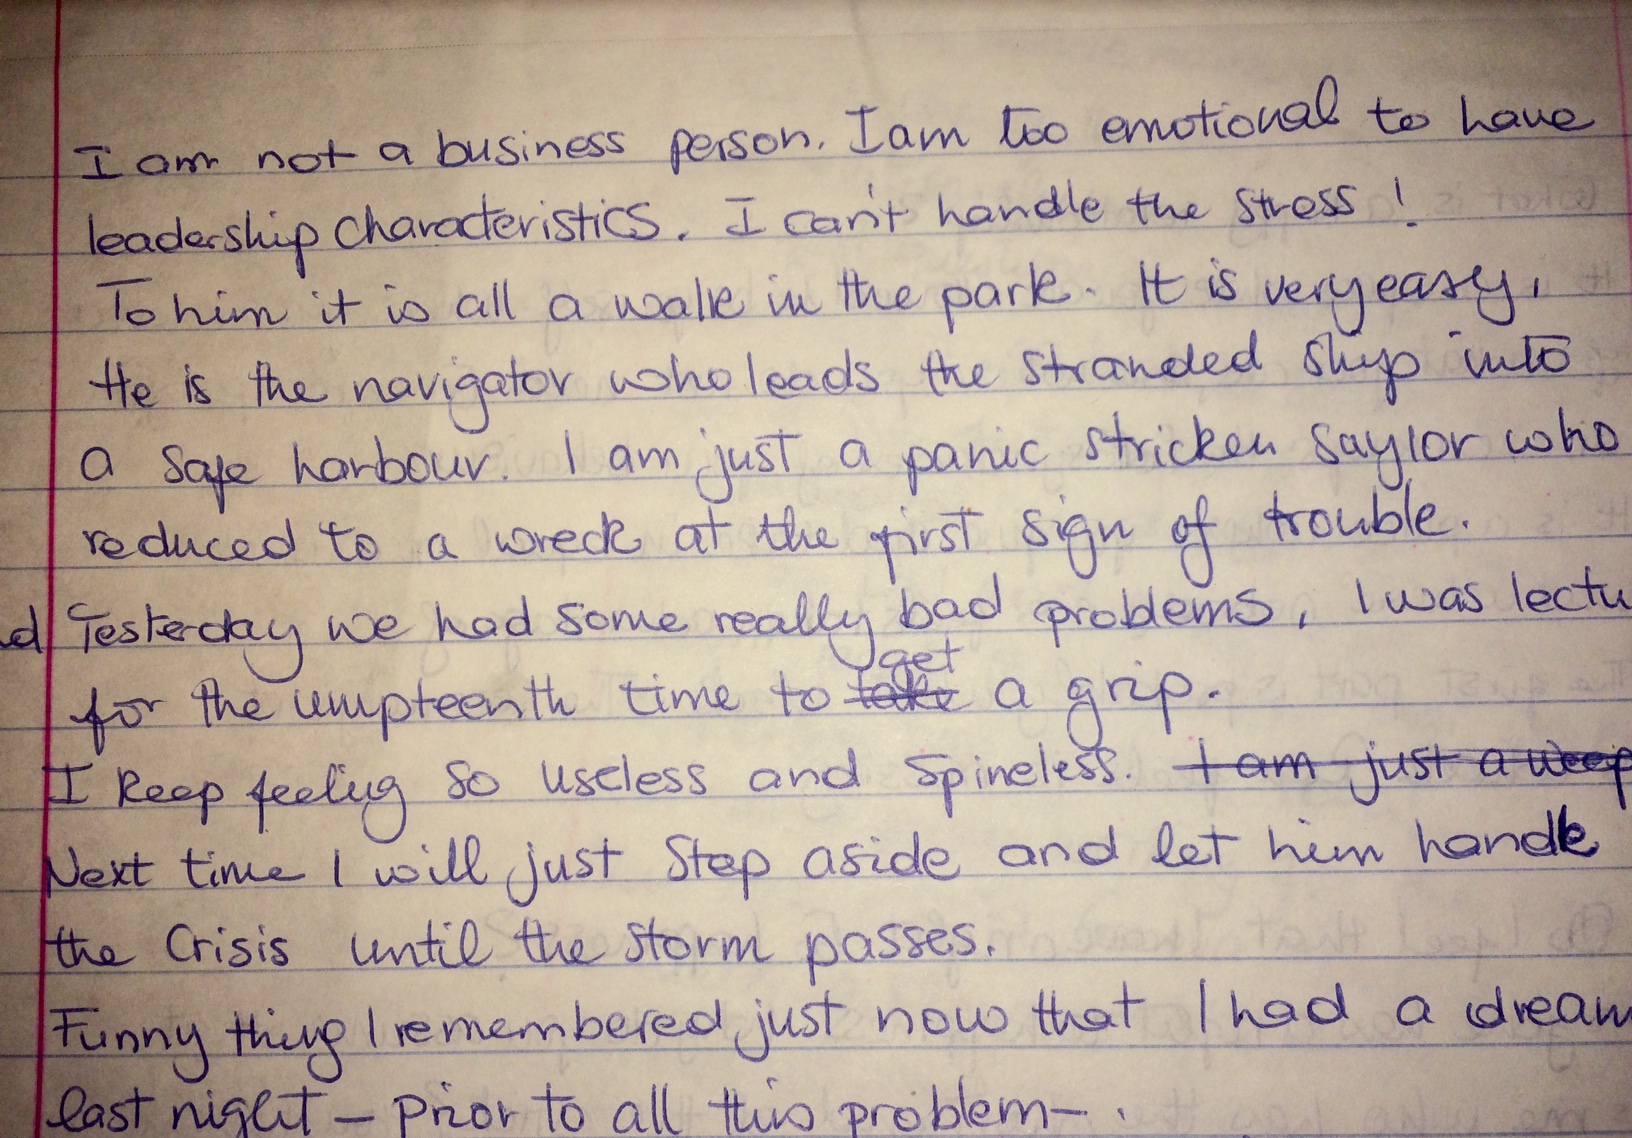 I am not a business person. I am too emotional to have
leadership characteristics. I can't handle the stress !
To him it is all a walk in the park. It is very easy,
He is the navigator who leads the stranded ship into
a safe harbour. I am just a panic stricken saylor who
reduced to a wreck at the first sign of trouble.
d Yesterday we had some really bad problems, I was lectu
get
for the umpteenth time to take a grip.
I keep feeling so useless and spineless. I am just a weep
Next time I will just step aside and let him handle
the crisis until the storm passes.
Funny thing I remembered just now that I had a dream
last night - prior to all this problem - .